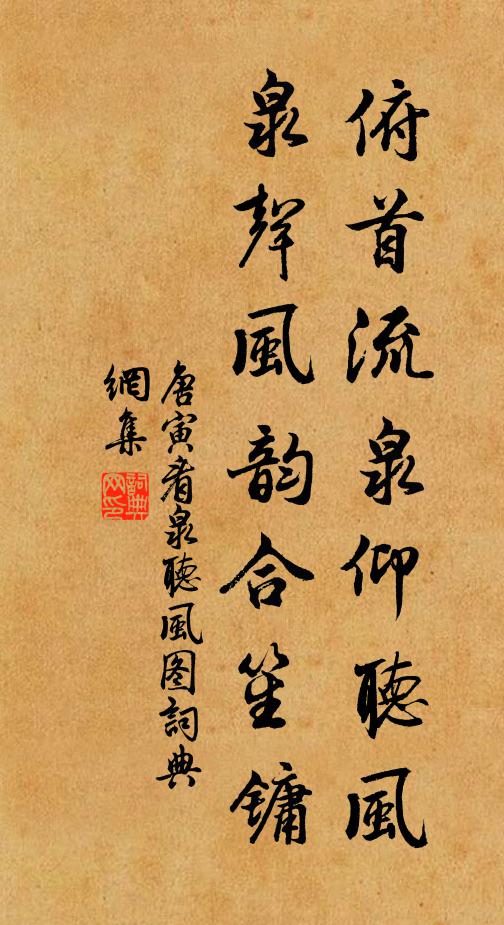 俯首流泉仰聽風
泉聲風韵合笙鏞
唐寅看泉聽風图詞典
網集
詞典
网印